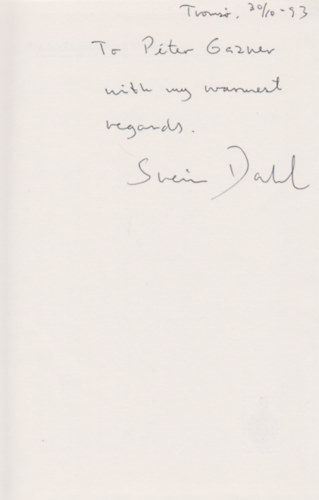 Tromsø, 20/10-93
To Péter Gazner
with my warmest
regards.
Svein Dahl